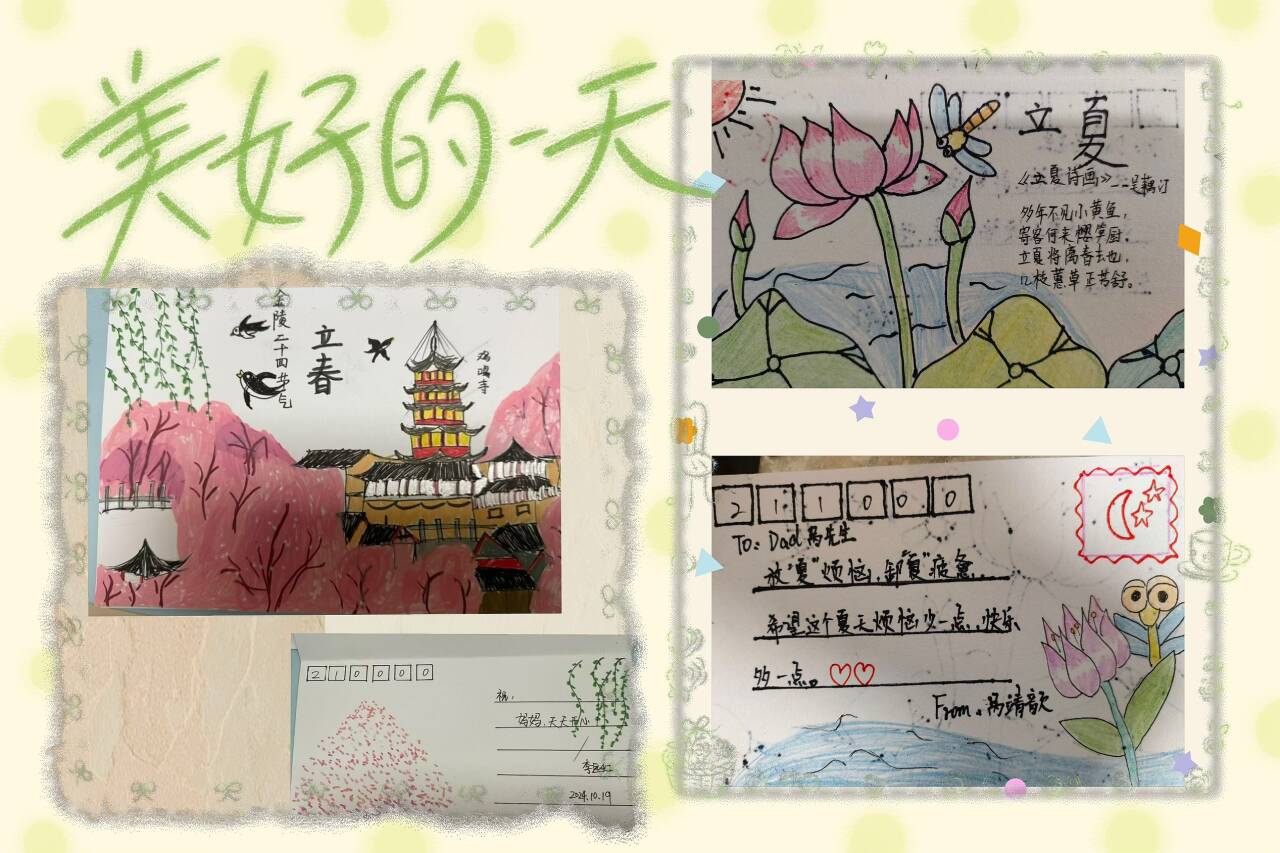 美好的一天
金陵二十四节气
立春
鸡鸣寺
210000
祝:
妈妈,天天开心
2024.10.19
立夏
《立夏诗画》--吴藕汀
多年不见小黄鱼,
寄客何来樱笋厨。
立夏将离春去也,
几枝蕙草正芳舒。
211000
To: Dad 冯先生
放"夏"烦恼,卸"夏"疲惫...
希望这个夏天烦恼少一点,快乐
多一点。
From.冯靖歆